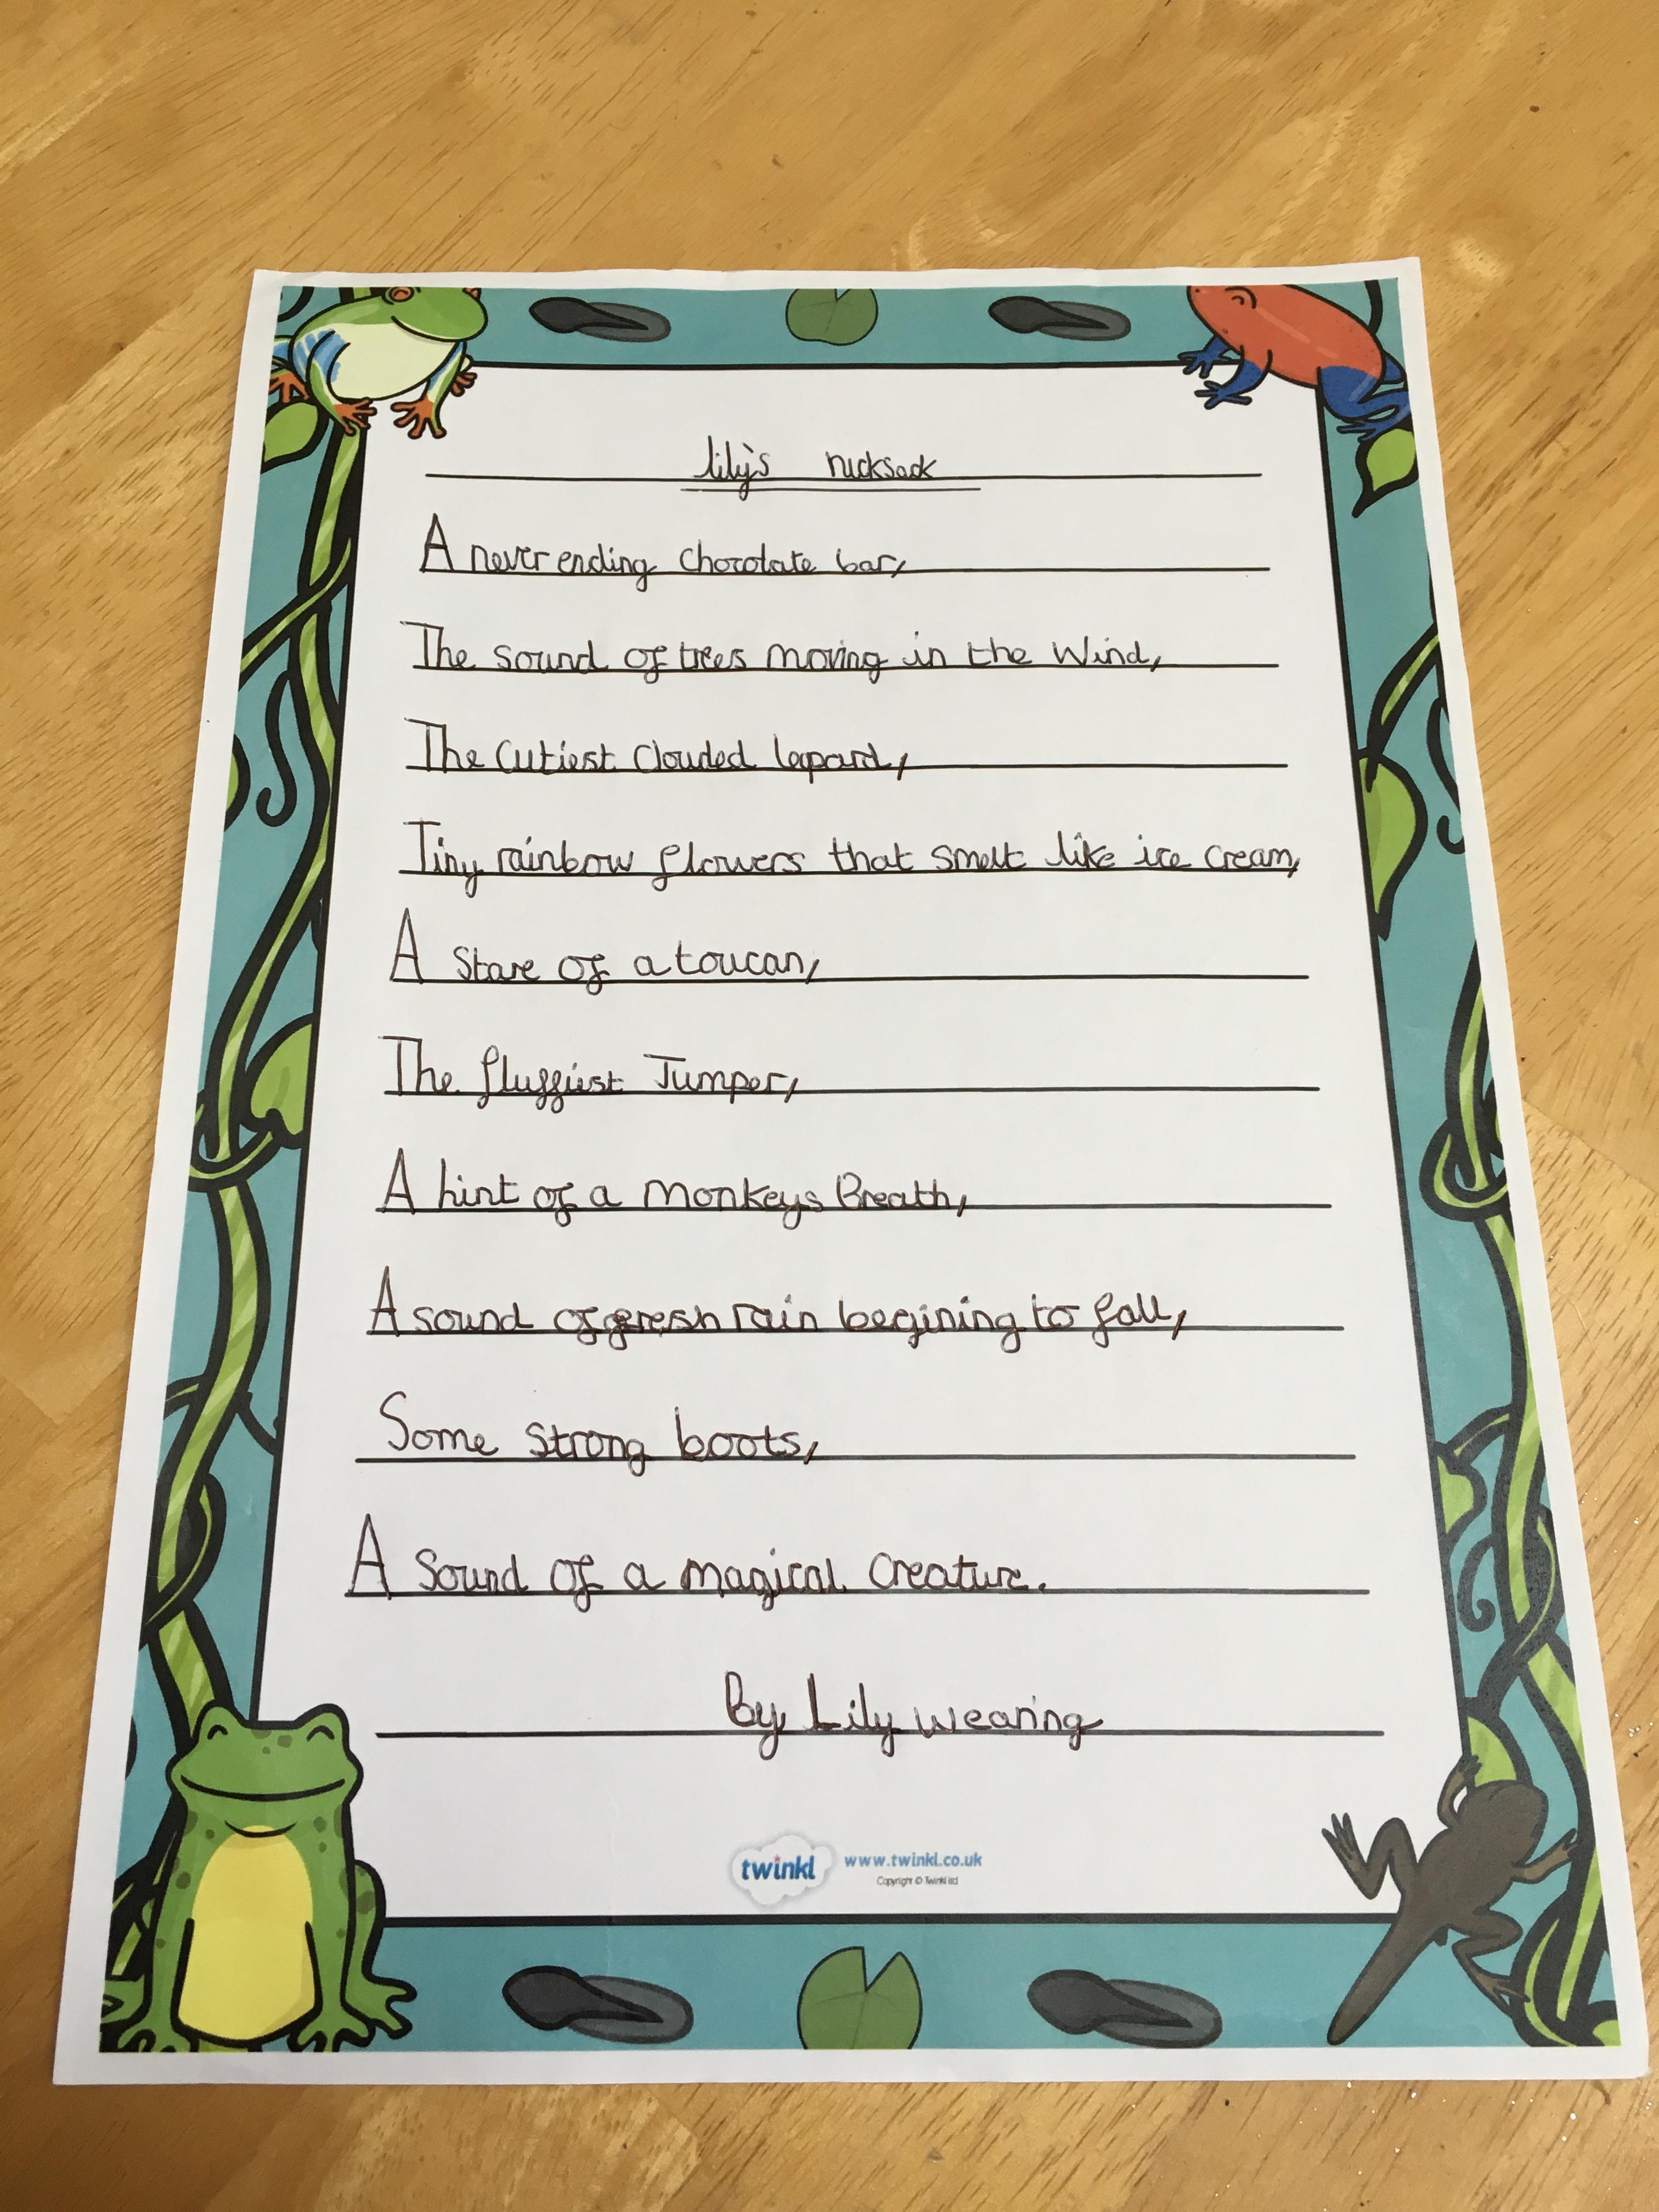 lily's rucksack
A never ending chocolate bar,
The sound of trees moving in the wind,
The cutiest clouded lepard,
Tiny rainbow flowers that smelt like ice cream,
A stare of a toucan,
The fluffiest Jumper,
A hint of a monkeys Breath,
A sound of fresh rain begining to fall,
Some strong boots,
A sound of a magical creature.
By Lily wearing
twinkl www.twinkl.co.uk
Copyright © Twinkl Ltd